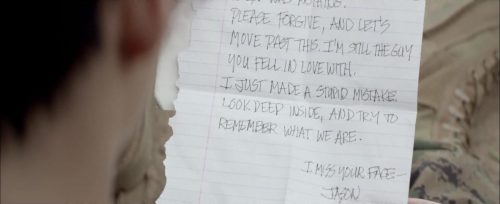 WAS
PLEASE FORGIVE, AND LET'S
MOVE PAST THIS. I'M STILL THE GUY
YOU FELL IN LOVE WITH.
I JUST MADE A STUPID MISTAKE.
LOOK DEEP INSIDE, AND TRY TO
REMEMBER WHAT WE ARE.
I MISS YOUR FACE—
JASON